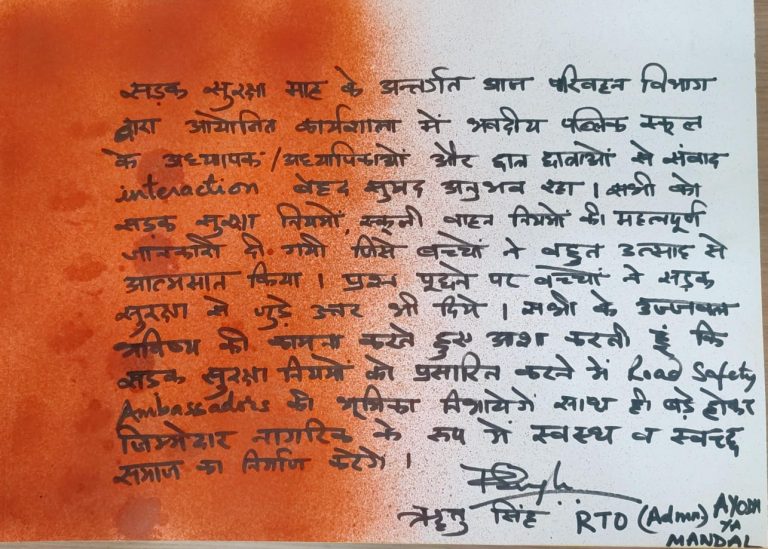 सड़क सुरक्षा माह के अन्तर्गत आज परिवहन विभाग
द्वारा आयोजित कार्यशाला में भवदीय पब्लिक स्कूल
के अध्यापक/अध्यापिकाओं और छात्र छात्राओं से संवाद
interaction बेहद सुखद अनुभव रहा। सभी को
सड़क सुरक्षा नियमों, स्कूली वाहन नियमों की महत्वपूर्ण
जानकारी दी गयी जिसे बच्चों ने बहुत उत्साह से
आत्मसात किया। प्रश्न पूछने पर बच्चों ने सड़क
सुरक्षा से जुड़े उत्तर भी दिये। सभी के उज्जवल
भविष्य की कामना करते हुए आशा करती हूं कि
सड़क सुरक्षा नियमों को प्रसारित करने में Road Safety
Ambassadors की भूमिका निभायेगें साथ ही बड़े होकर
जिम्मेदार नागरिक के रूप में स्वस्थ व स्वच्छ
समाज का निर्माण करेगें।
ऋतु सिंह RTO (Admn) AYODHYA
MANDAL